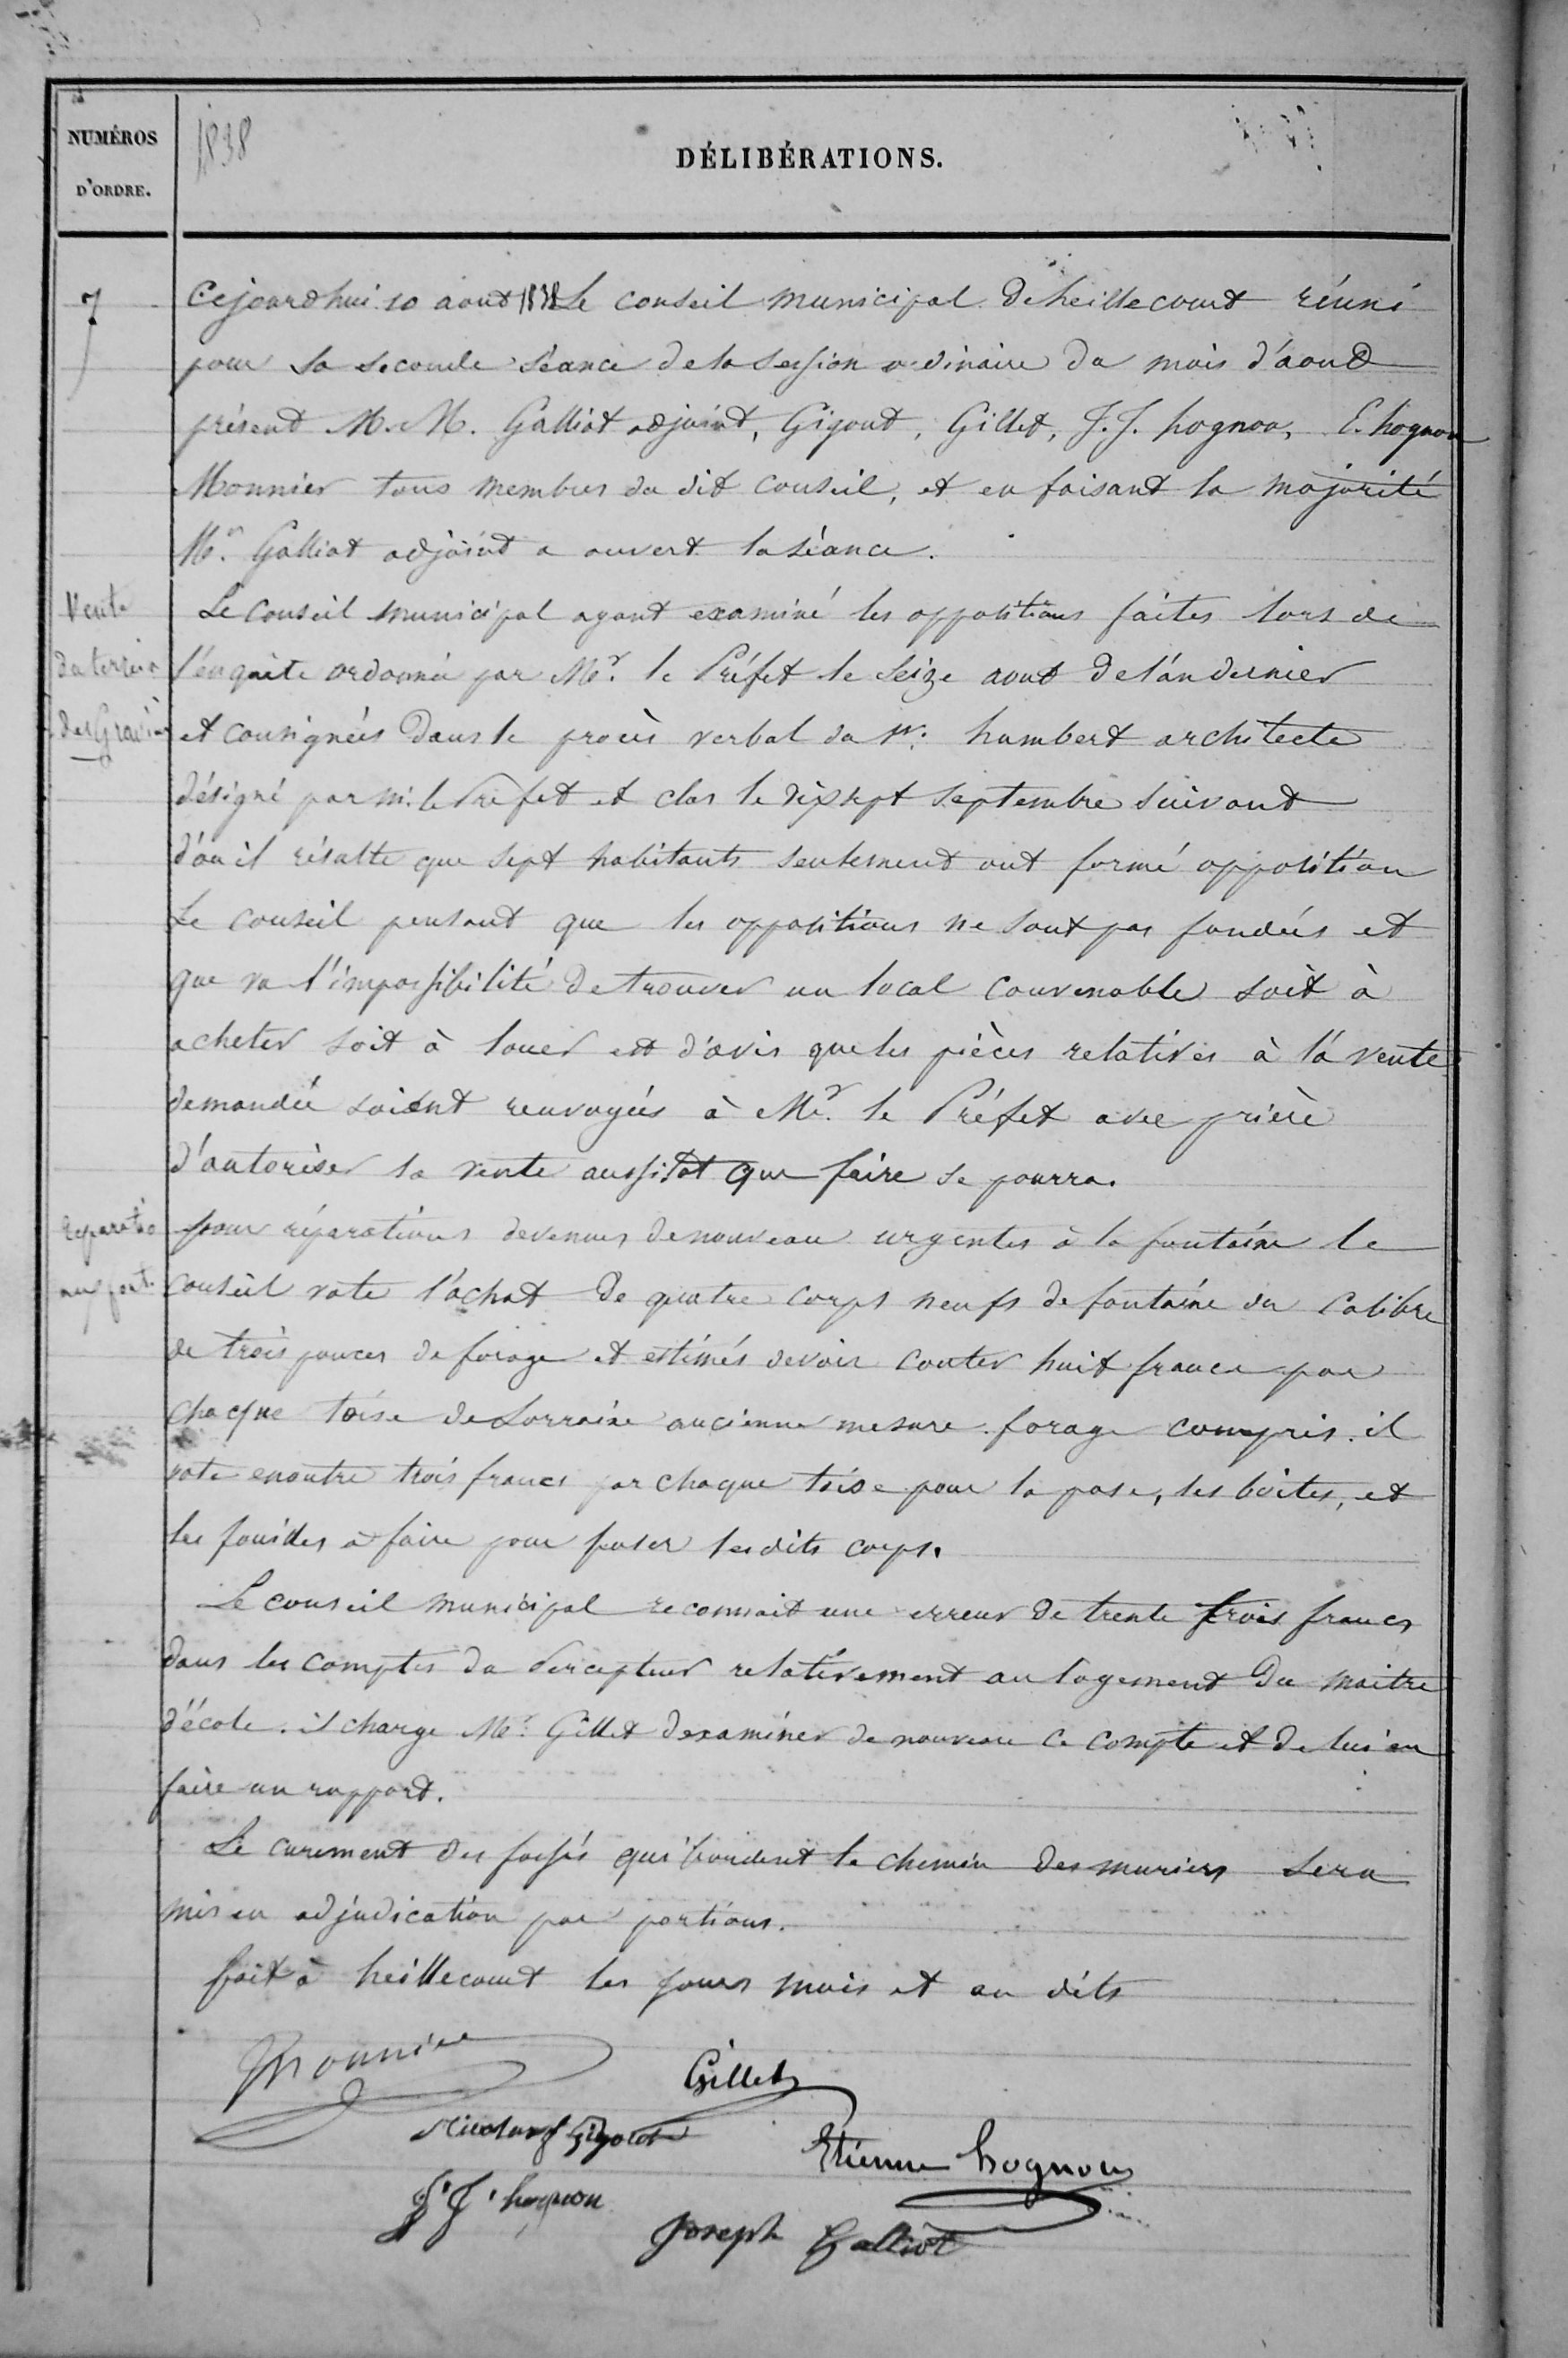 NUMÉROS
D'ORDRE.
1838
DÉLIBÉRATIONS.
7
Cejourdhui 10 aout 1838 Le conseil municipal de heillecourt réuni
pour sa seconde séance de la session ordinaire du mois d'aout
présent M. M. Galliot adjoint, Gigout, Gillet, J. J. hognon, E. hognon
Monnier tous membres du dit conseil, et en faisant la majorité
Mr. Galliot adjoint a ouvert la séance.
Vente
du terrain
des
Le conseil municipal ayant examiné les oppositions faites lors de
l'enquête ordonnée par Mr. le Préfet le seize aout de l'an dernier
et consignées dans le procès verbal du Sr. humbert architecte
désigné par m. le Préfet et clos le dixsept septembre suivant
d'où il résulte que sept habitants seulement ont formé opposition
Le conseil pensant que les oppositions ne sont pas fondées et
que vu l'impossibilité de trouver un local convenable soit à
acheter soit à louer est d'avis que les pièces relatives à la vente
demandée soient renvoyées à Mr. le Préfet avec prière
d'autoriser la vente aussitot que faire se pourra.
Reparatio
aux font.
pour réparations devenues de nouveau urgentes à la fontaine le
conseil vote l'achat de quatre corps neufs de fontaine du calibre
de trois pouces de forage et estimés devoir couter huit francs par
chaque toise de Lorraine ancienne mesure forage compris. il
vote enoutre trois francs par chaque toise pour la pose, les boites, et
les fouilles à faire pour poser lesdits corps.
Le conseil municipal reconnait une erreur de trente trois francs
dans les comptes du Percepteur relativement au logement du maitre
d'école. il charge Mr. Gillet d'examiner de nouveau ce compte et de lui en
faire un rapport.
Le curement des fossés qui bordent le chemin des muriers sera
mis en adjudication par portions.
fait à heillecourt les jours mois et an dits
Monnier
Gillet
Nicolas Gigout
Etienne hognon
J. J. hognon
Joseph Galliot